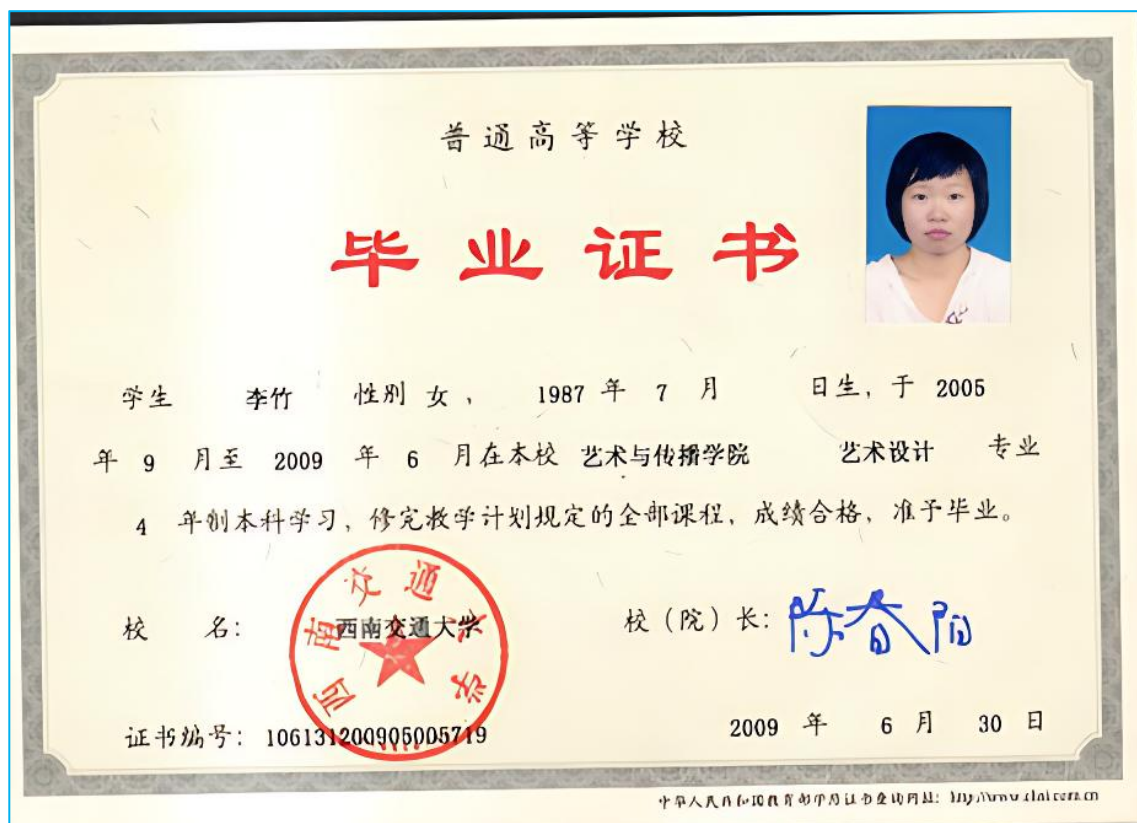 普通高等学校
毕业证书
学生 李竹 性别 女 ， 1987 年 7 月 日生，于 2005
年 9 月至 2009 年 6 月在本校 艺术与传播学院 艺术设计 专业
4 年制本科学习，修完教学计划规定的全部课程，成绩合格，准予毕业。
校 名： 西南交通大学
西南交通大学
校（院）长： 陈春阳
证书编号：106131200905005719
2009 年 6 月 30 日